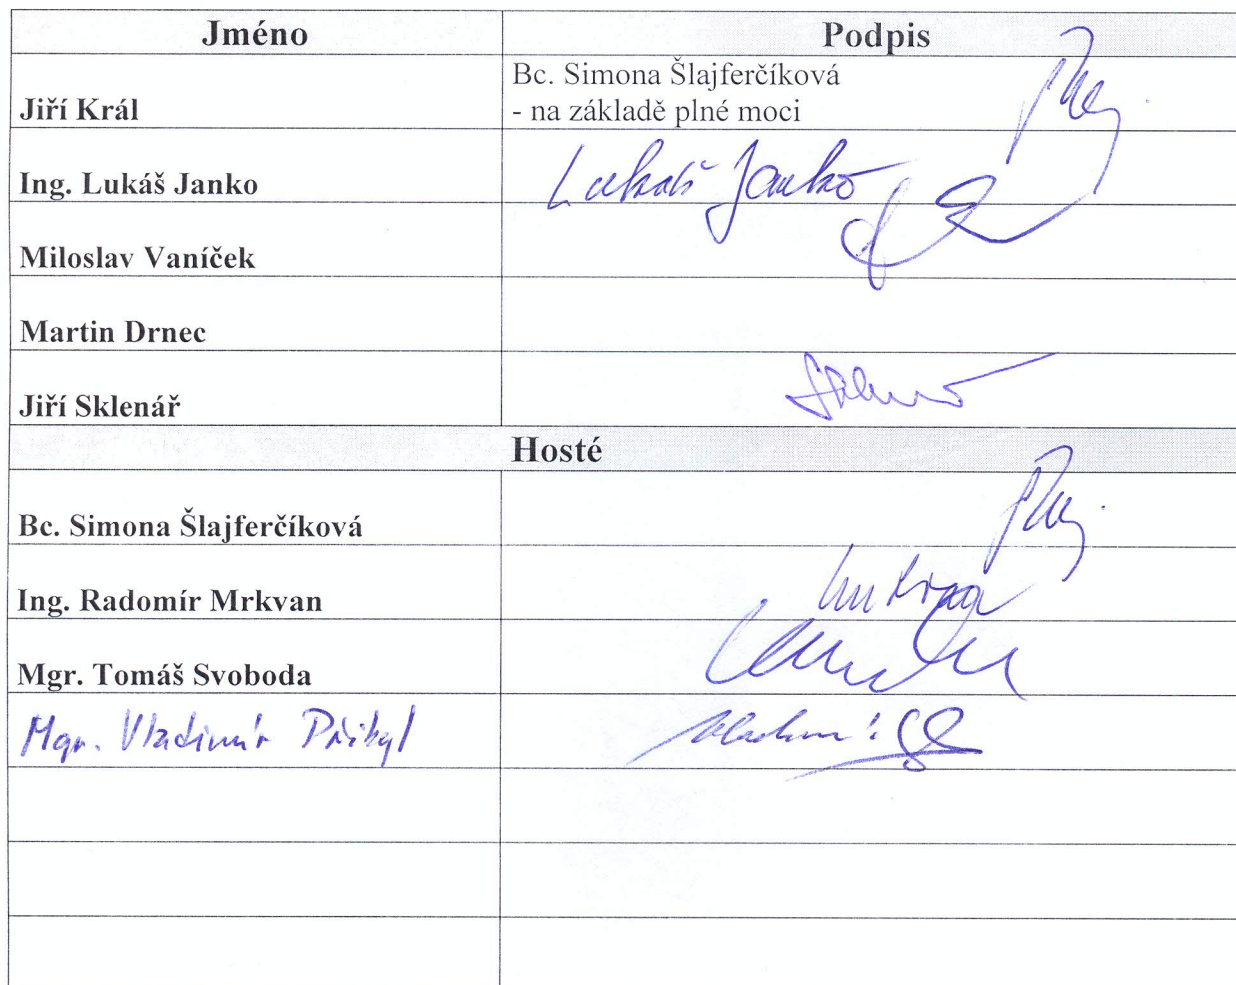 Jméno Podpis
Bc. Simona Šlajferčíková
Jiří Král - na základě plné moci
Ing. Lukáš Janko Lukáš Janko
Miloslav Vaníček
Martin Drnec
Jiří Sklenář
Hosté
Bc. Simona Šlajferčíková
Ing. Radomír Mrkvan
Mgr. Tomáš Svoboda
Mgr. Vladimír Přibyl